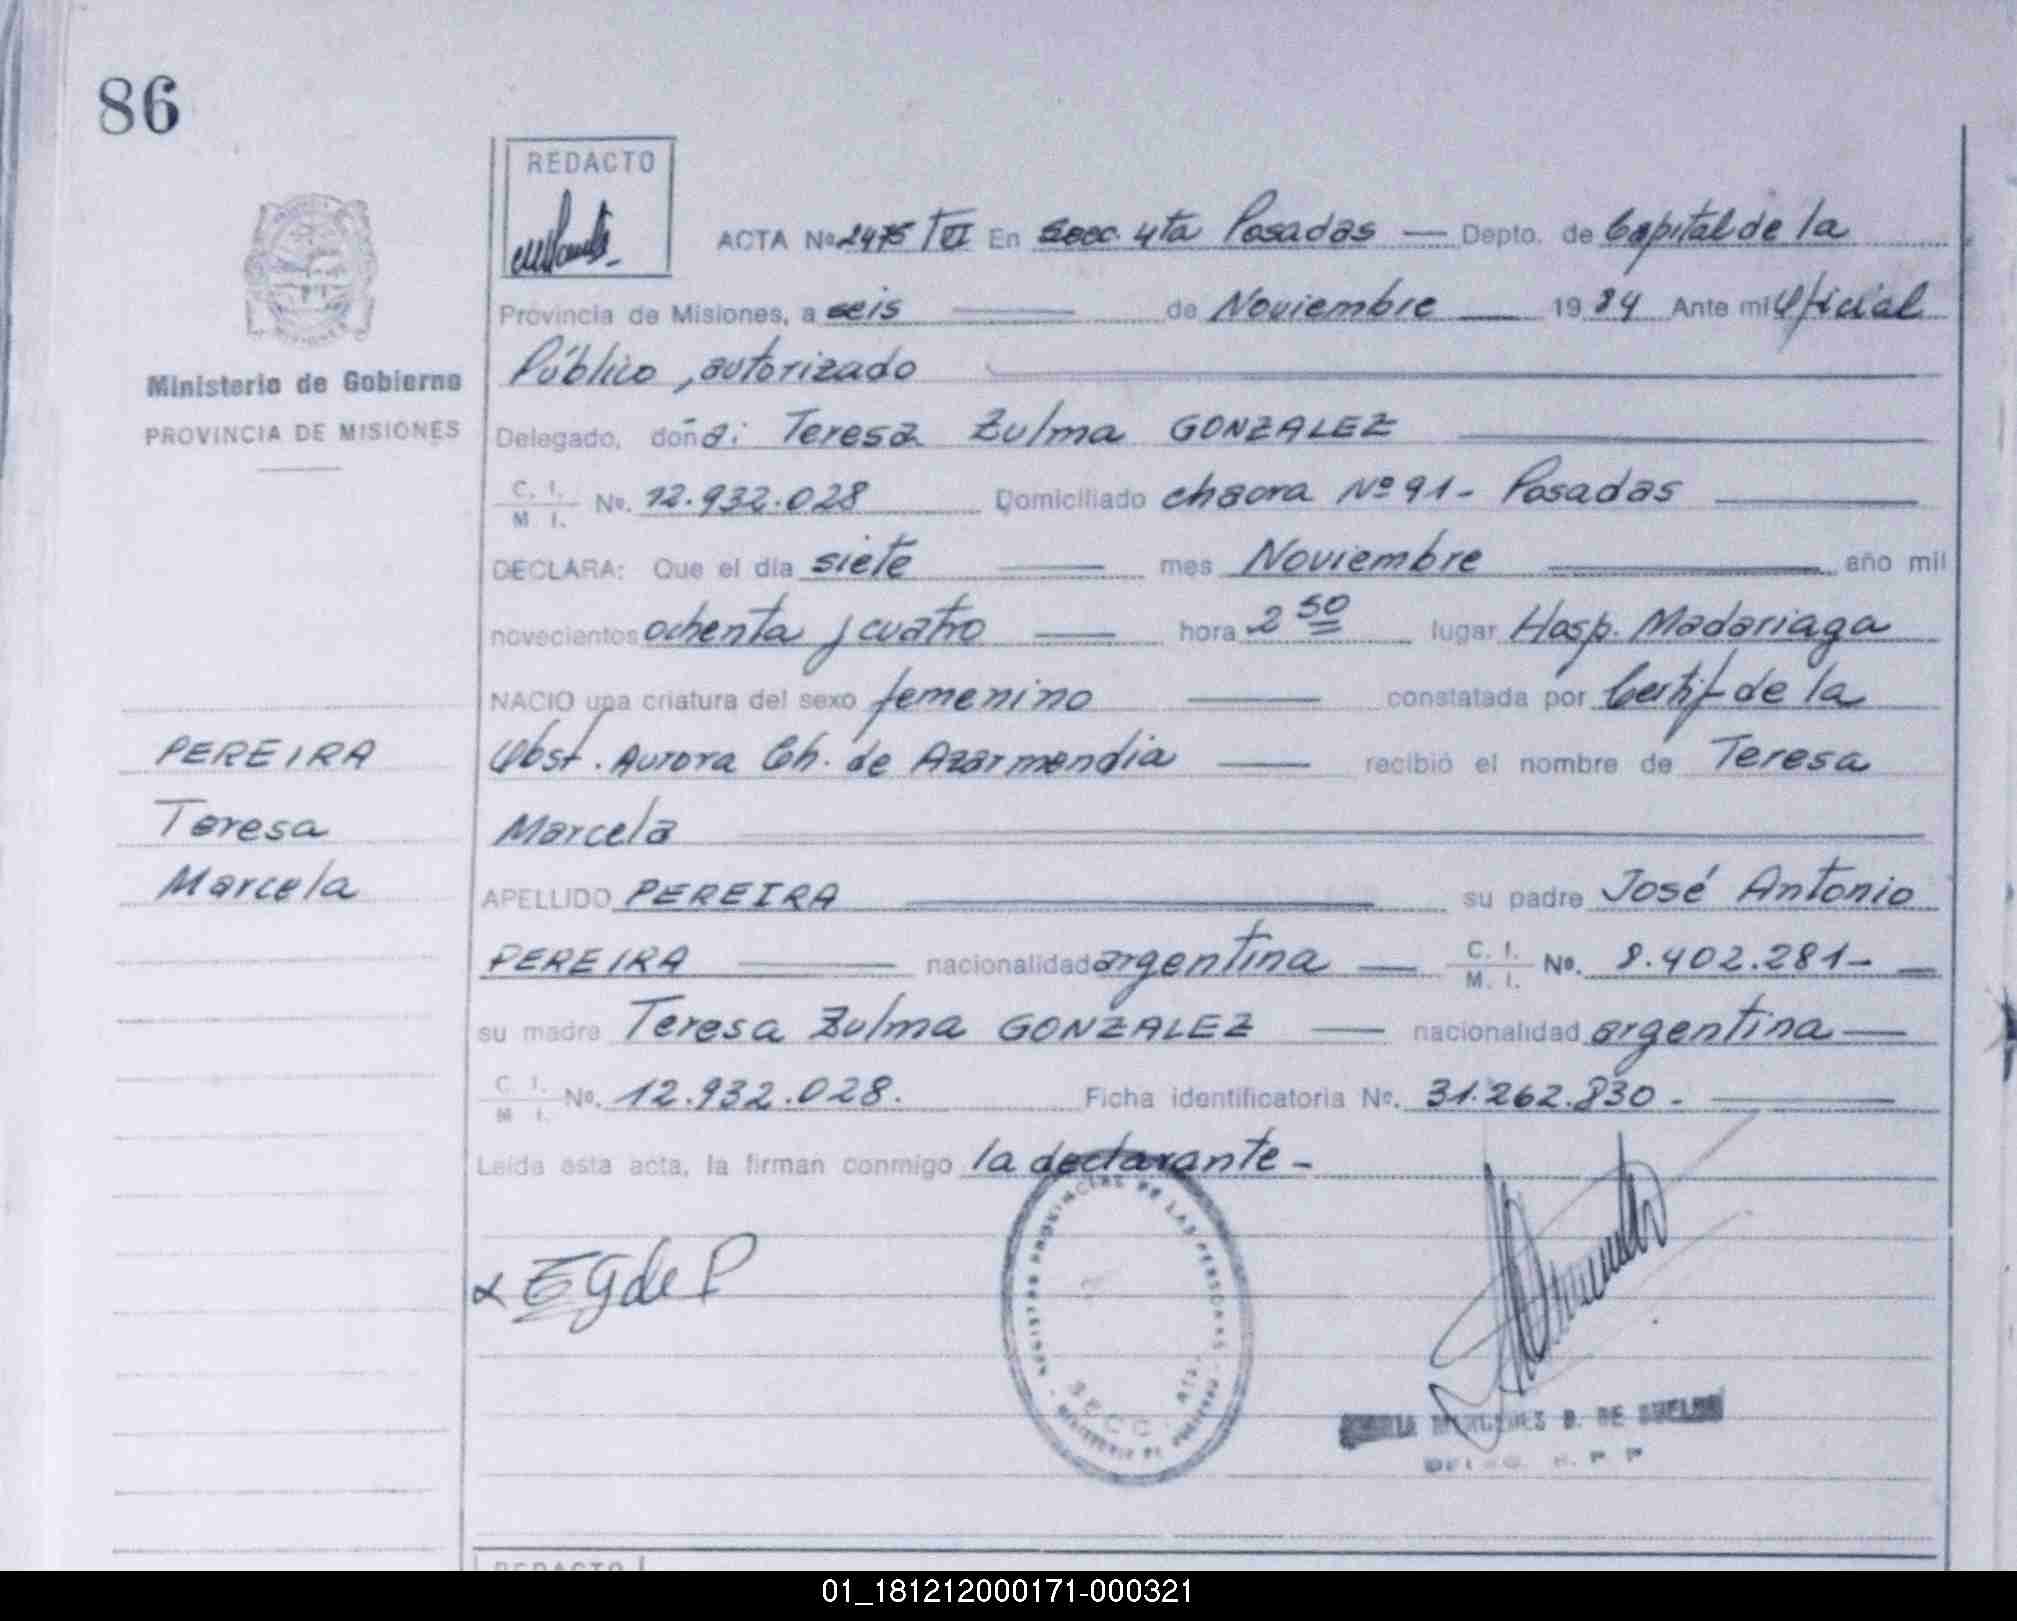 86
REDACTO
ACTA No 2475 TVI En Secc. 4ta Posadas — Depto. de Capital de la
Provincia de Misiones, a seis — de Noviembre — 1984 Ante mi Oficial
Público, autorizado
Ministerio de Gobierno
PROVINCIA DE MISIONES
Delegado, doña: Teresa Zulma GONZALEZ
C. I. / M. I. No. 12.932.028 Domiciliado chacra Nº 91 - Posadas
DECLARA: Que el día siete — mes Noviembre — año mil
novecientos ochenta y cuatro — hora 2 50 lugar Hosp. Madariaga
NACIO una criatura del sexo femenino — constatada por Certif. de la
Obst. Aurora Ch. de Azarmendia — recibió el nombre de Teresa
Marcela
PEREIRA
Teresa
Marcela
APELLIDO PEREIRA — su padre José Antonio
PEREIRA — nacionalidad argentina — C. I. / M. I. No. 8.402.281 -
su madre Teresa Zulma GONZALEZ — nacionalidad argentina —
C. I. / M. I. No. 12.932.028. Ficha identificatoria No. 31.262.830 -
Leída esta acta, la firman conmigo la declarante -
x EGdeP
REGISTRO PROVINCIAL DE LAS PERSONAS
SECC. 4ta.
MERCEDES B. DE
R. P. P.
REDACTO
01_181212000171-000321